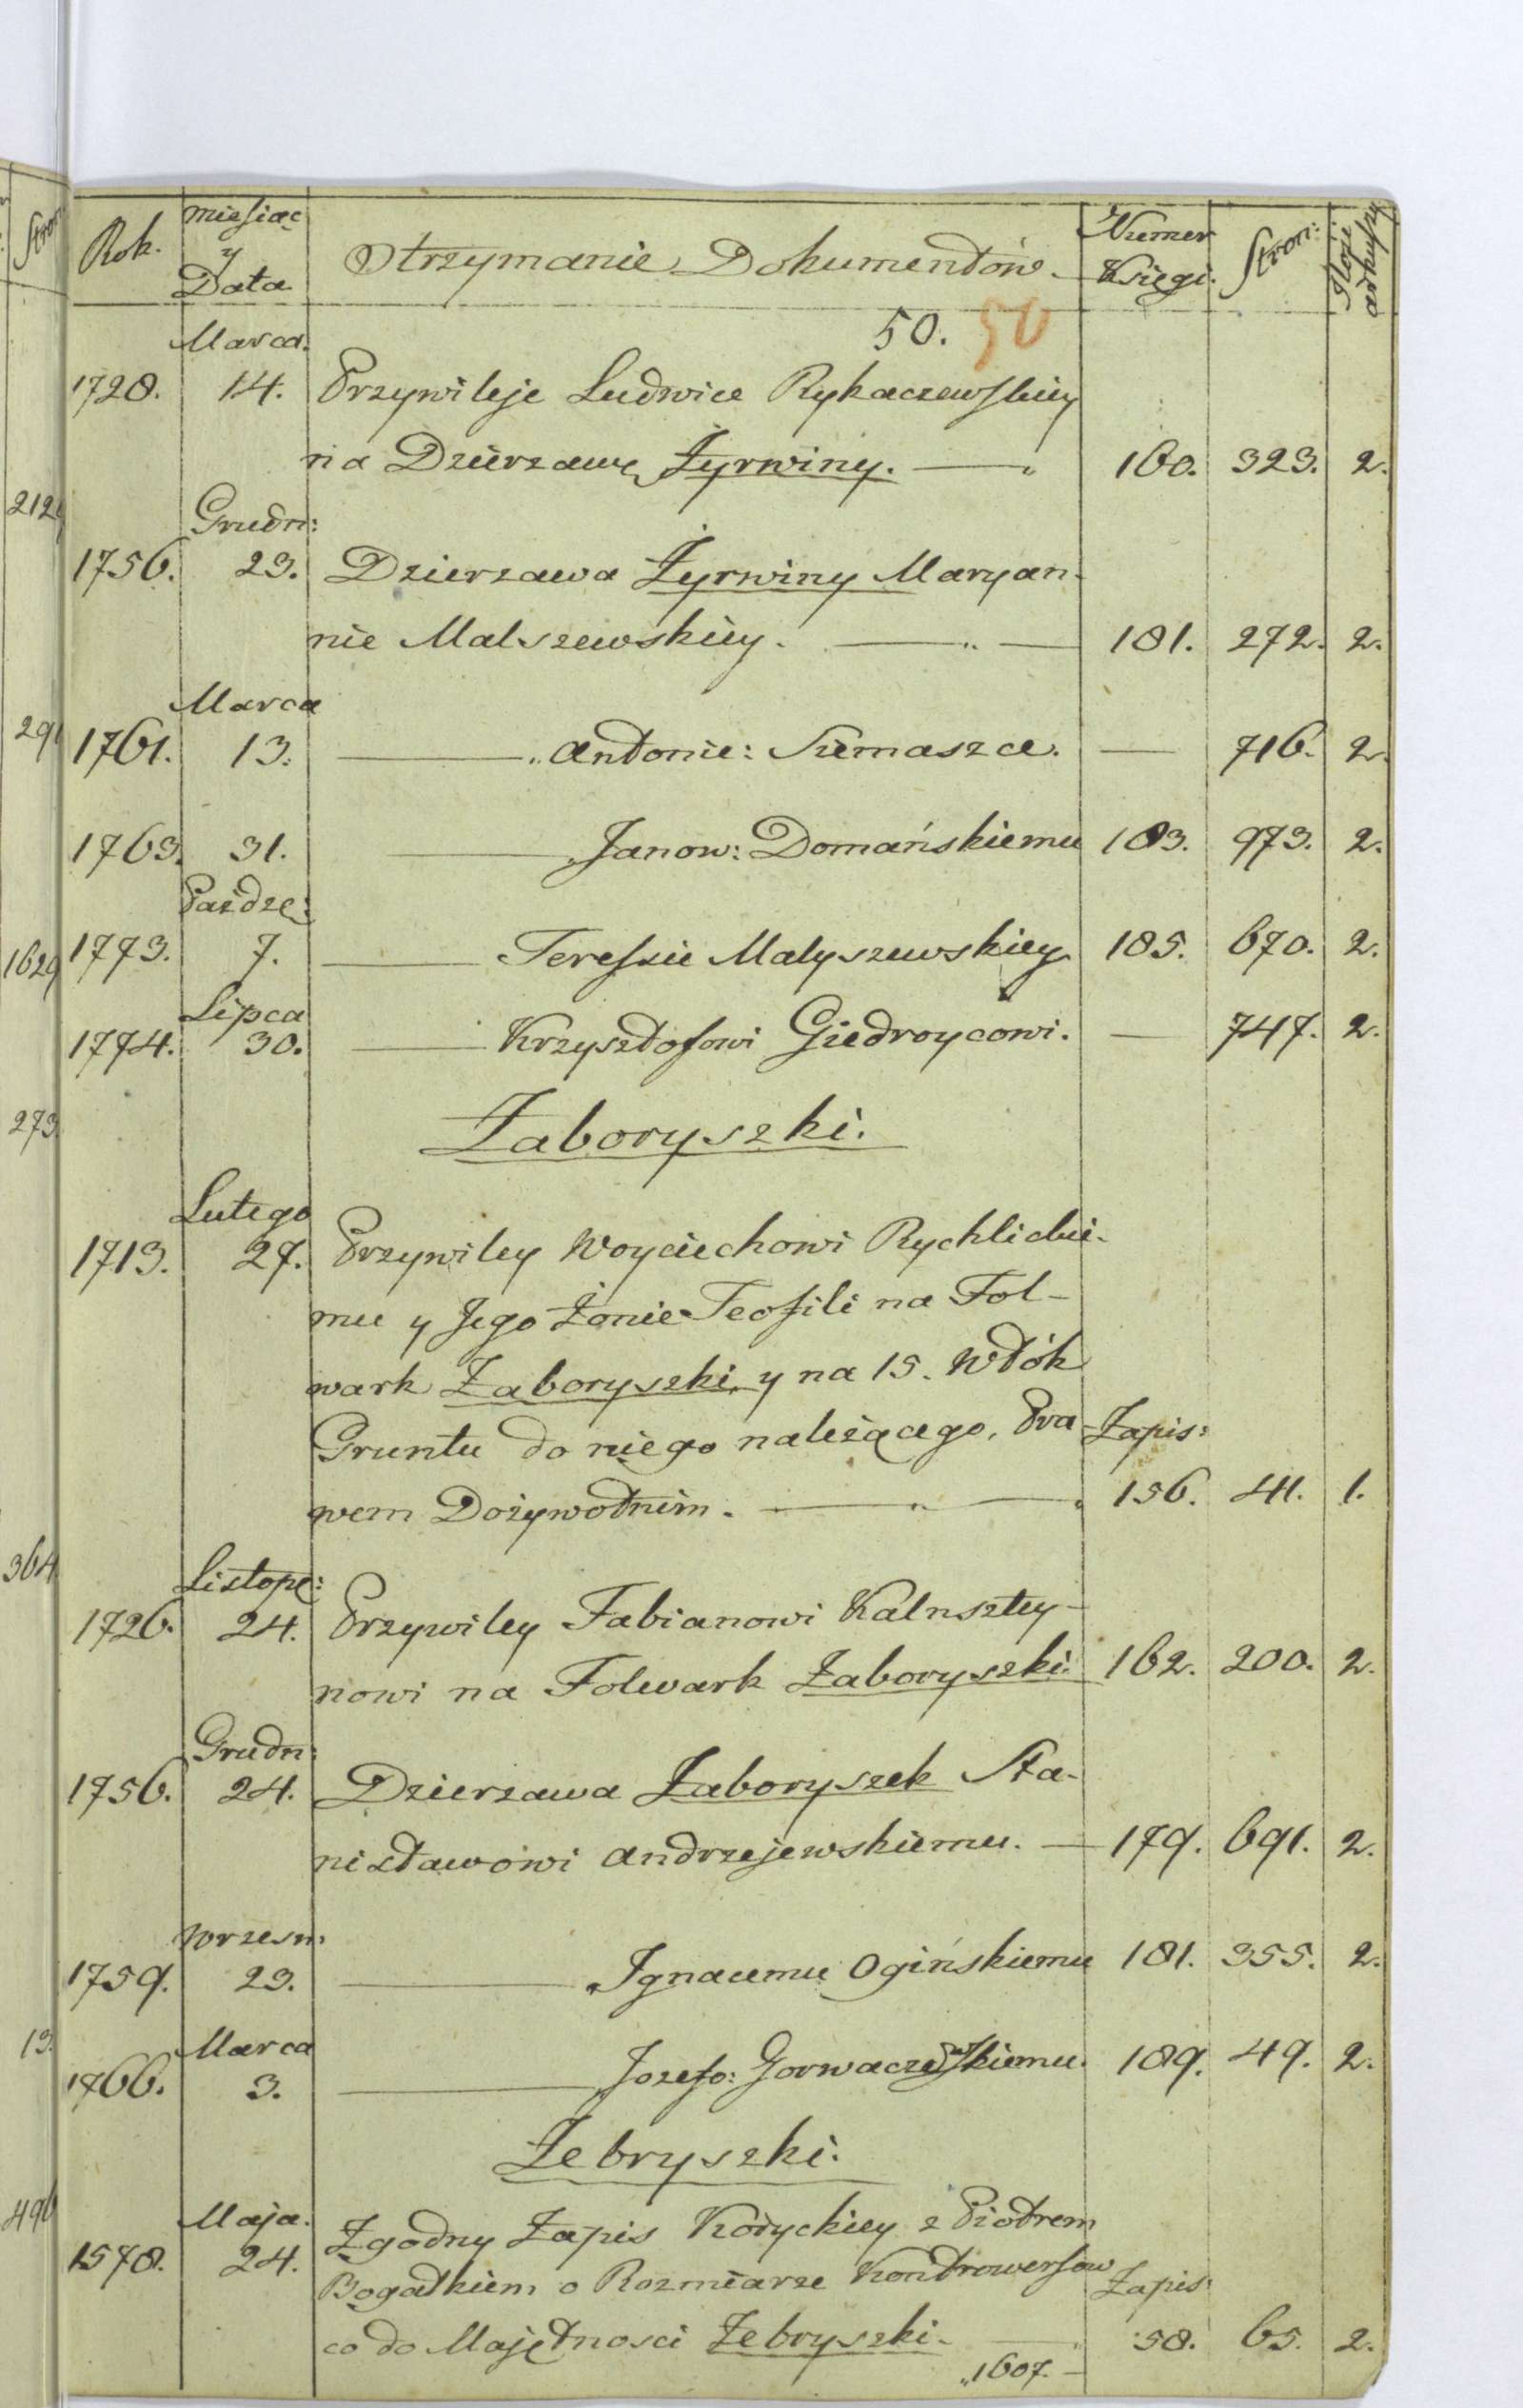 Stron:
Rok. miesiąc y Data Otrzymanie Dokumentów. Numer Księgi. Stron: Ilość arkuszy
50. 50
Marca.
1728. 14. Przywileje Ludwice Rykaczewskiey
na Dzierzawę Żyrwiny. 160. 323. 2.
212
Grudn:
1756. 23. Dzierzawa Żyrwiny Maryan-
nie Malszewskiey. 181. 272. 2.
Marca
291 1761. 13. Antonie: Siemaszce. — 716. 2.
1763. 31. Janow: Domańskiemu 183. 973. 2.
Paźdze:
1629 1773. 7. Teressie Malyszewskiey 185. 670. 2.
Lipca
1774. 30. Krzysztofowi Giedroycowi. — 747. 2.
273. Zaboryszki.
Lutego
1713. 27. Przywiley Woyciechowi Rychlickie-
mu y Jego Żonie Teofili na Fol-
wark Zaboryszki y na 15. Włók
Gruntu do niego należącego, Pra- Zapis:
wem Dożywotnim. 156. 41. 1.
364
Listopa:
1726. 24. Przywiley Fabianowi Kalnsztey-
nowi na Folwark Zaboryszki. 162. 200. 2.
Grudn:
1756. 24. Dzierzawa Zaboryszek Sta-
nisławowi Andrzejewskiemu. — 179. 691. 2.
Wrzesn:
1759. 23. Ignacemu Ogińskiemu 181. 355. 2.
13. Marca
1766. 3. Jozefo: Gorwaczewskiemu. 189. 49. 2.
Żebryszki.
496 Maja.
1578. 24. Zgodny Zapis Kotyckiey z Piotrem
Bogatkiem o Rozmiarze Kontrowersow Zapis:
co do Majętnosci Żebryszki. 58. 65. 2.
1607.